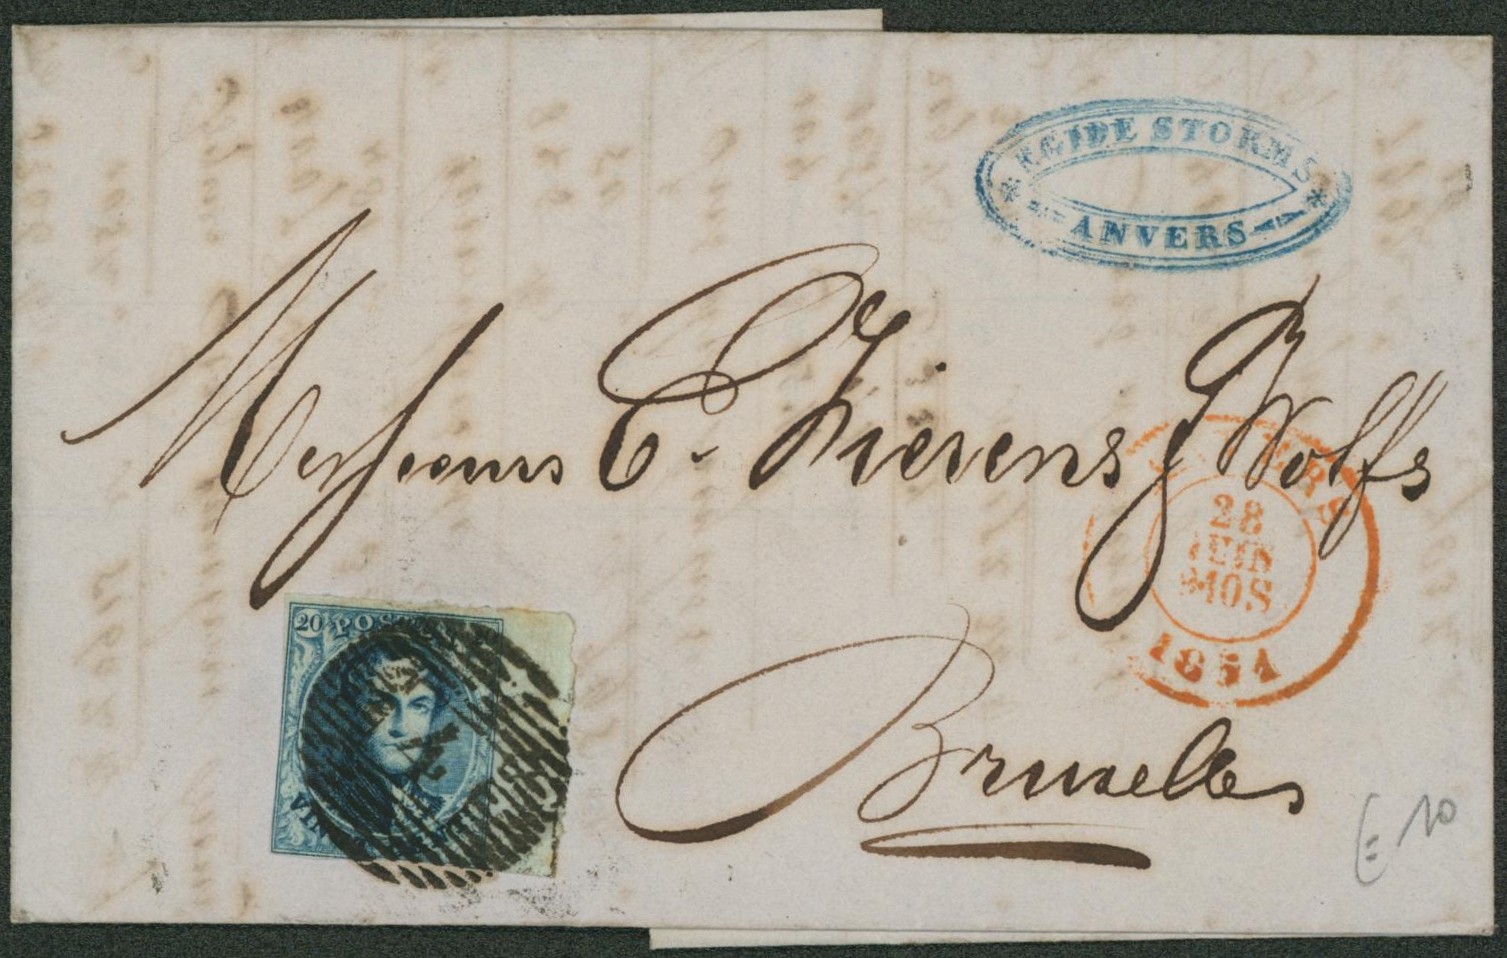 EGIDE STORMS
ANVERS
Messieurs C. Fierens & Wolfs
VERS
28
JUIN
10 S
1854
20 POST
4
VIN
Bruxelles
E 10